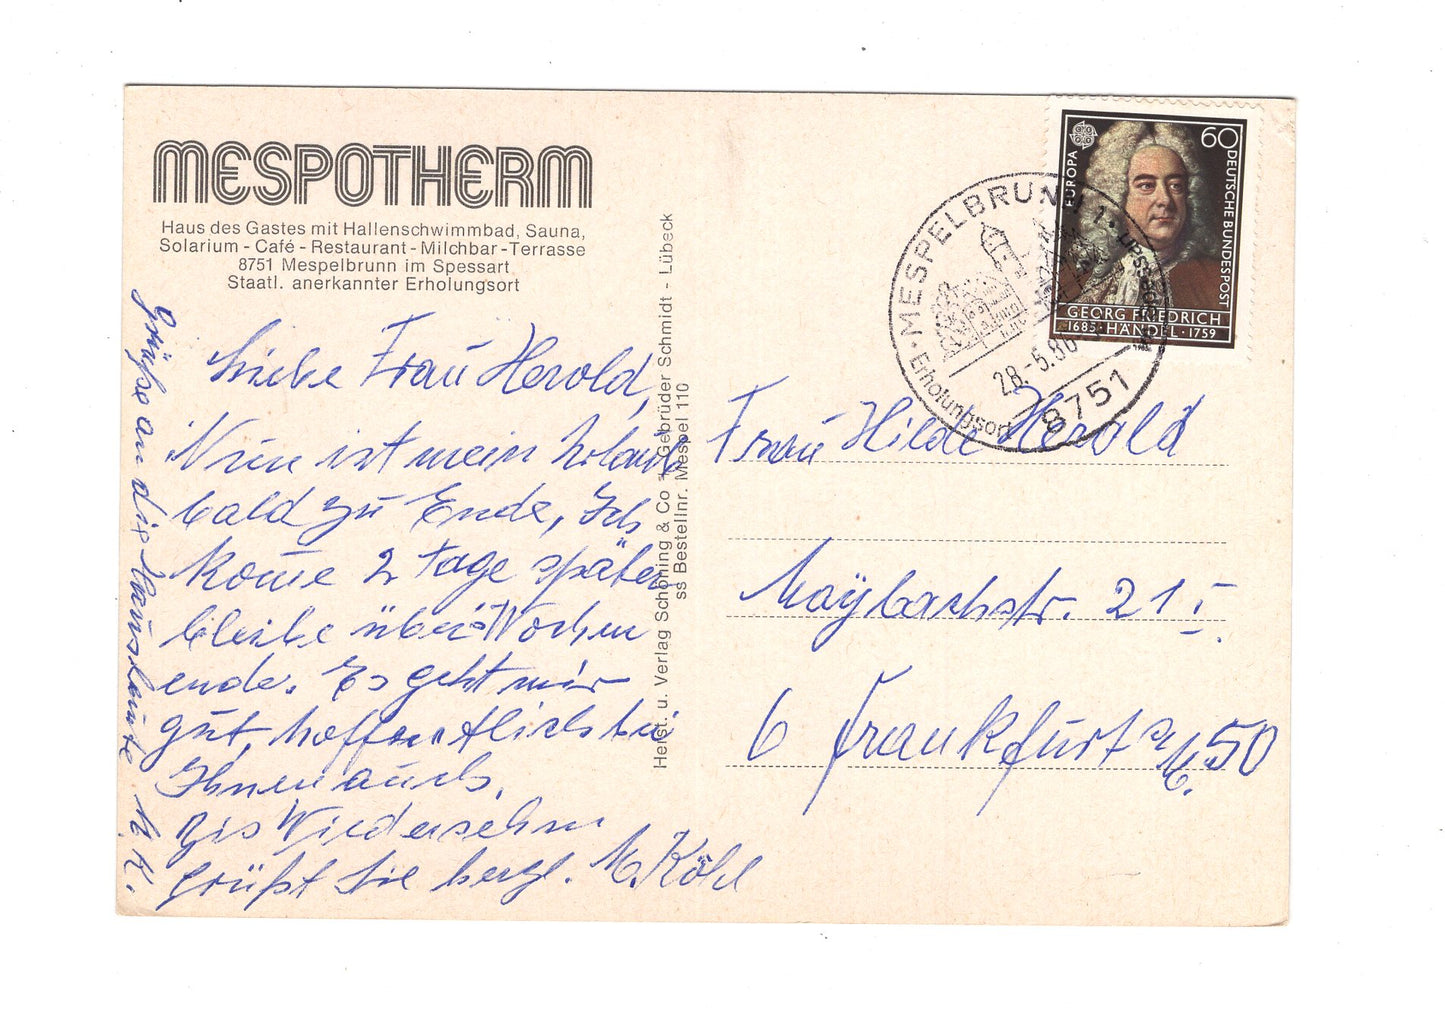 MESPOTHERM
Haus des Gastes mit Hallenschwimmbad, Sauna,
Solarium - Café - Restaurant - Milchbar - Terrasse
8751 Mespelbrunn im Spessart
Staatl. anerkannter Erholungsort
Liebe Frau Herold,
Nun ist mein Urlaub
bald zu Ende, Ich
kome 2 Tage später
bleibe über Wochen
ende. Es geht mir
gut, hoffentlich bei
Ihnen auch.
Bis Wiedersehn
grüßt Sie herzl. M. Köhl
Grüße an die Hausleute M. K.
Herst. u. Verlag Schöning & Co + Gebrüder Schmidt - Lübeck
ss Bestellnr. Mespel 110
MESPELBRUNN 1
Erholungsort
28.-5.86
8751
EUROPA
60
DEUTSCHE BUNDESPOST
GEORG FRIEDRICH
1685 · HÄNDEL · 1759
Frau Hilde Herold
Maybachstr. 21 I.
6 Frankfurt a M. 50